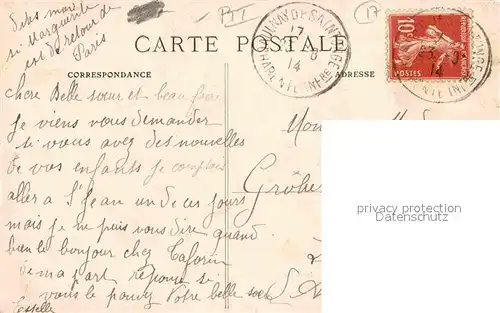 Dites moi
si Marguerite
est de retour de
Paris
17
CARTE POSTALE
CORRESPONDANCE
ADRESSE
AULNAY DE SAINTONGE
17
14
CHARENTE INFRE
10c
POSTES
Chere Belle sœur et beau frère
Je viens vous demander
si vous avez des nouvelles
de vos enfants je comptais
aller a St Jean un de ces jours
mais je ne puis vous dire quand
bien le bonjour chez Caforin
de ma part reponse si
vous le pouvez Votre belle sœur
Estelle
privacy protection
Datenschutz